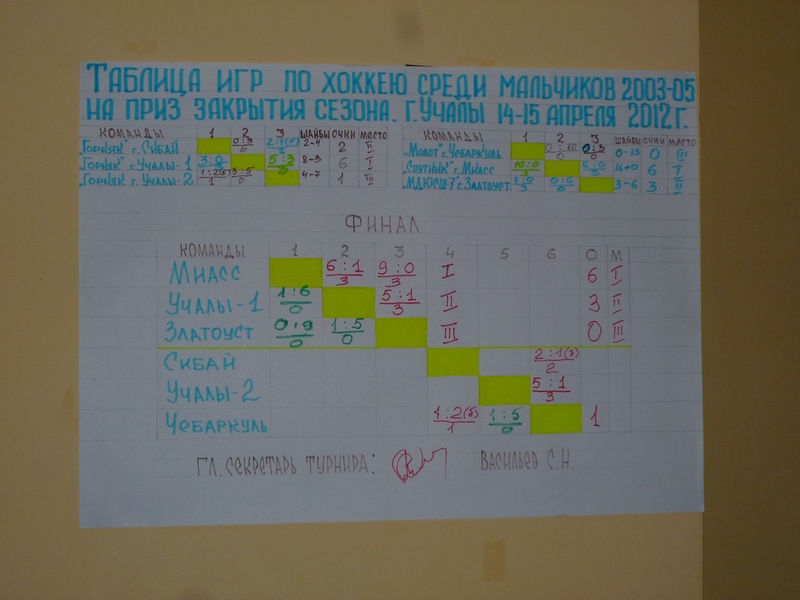 ТАБЛИЦА ИГР ПО ХОККЕЮ СРЕДИ МАЛЬЧИКОВ 2003-05
НА ПРИЗ ЗАКРЫТИЯ СЕЗОНА. г.УЧАЛЫ 14-15 АПРЕЛЯ 2012г.
КОМАНДЫ 1 2 3 ШАЙБЫ ОЧКИ МЕСТО
"ГОРНЯК" г. СИБАЙ 0:3 0 2:1(б) 2 2-4 2 II
"ГОРНЯК" г. УЧАЛЫ-1 3:0 3 5:3 3 8-3 6 I
"ГОРНЯК" г. УЧАЛЫ-2 1:2(б) 1 3:5 0 4-7 1 III
КОМАНДЫ 1 2 3 ШАЙБЫ ОЧКИ МЕСТО
"МОЛОТ" г. ЧЕБАРКУЛЬ 0:10 0 0:3 0 0-13 0 III
"СПУТНИК" г. МИАСС 10:0 3 6:0 3 16+0 6 I
"МДЮСШ-7" г. ЗЛАТОУСТ 3:0 3 0:6 0 3-6 3 II
ФИНАЛ
КОМАНДЫ 1 2 3 4 5 6 О М
МИАСС 6:1 3 9:0 3 I 6 I
УЧАЛЫ-1 1:6 0 5:1 3 II 3 II
ЗЛАТОУСТ 0:9 0 1:5 0 III 0 III
СИБАЙ 2:1(б) 2
УЧАЛЫ-2 5:1 3
ЧЕБАРКУЛЬ 1:2(б) 1 1:5 0 1
ГЛ. СЕКРЕТАРЬ ТУРНИРА: ВАСИЛЬЕВ С.Н.